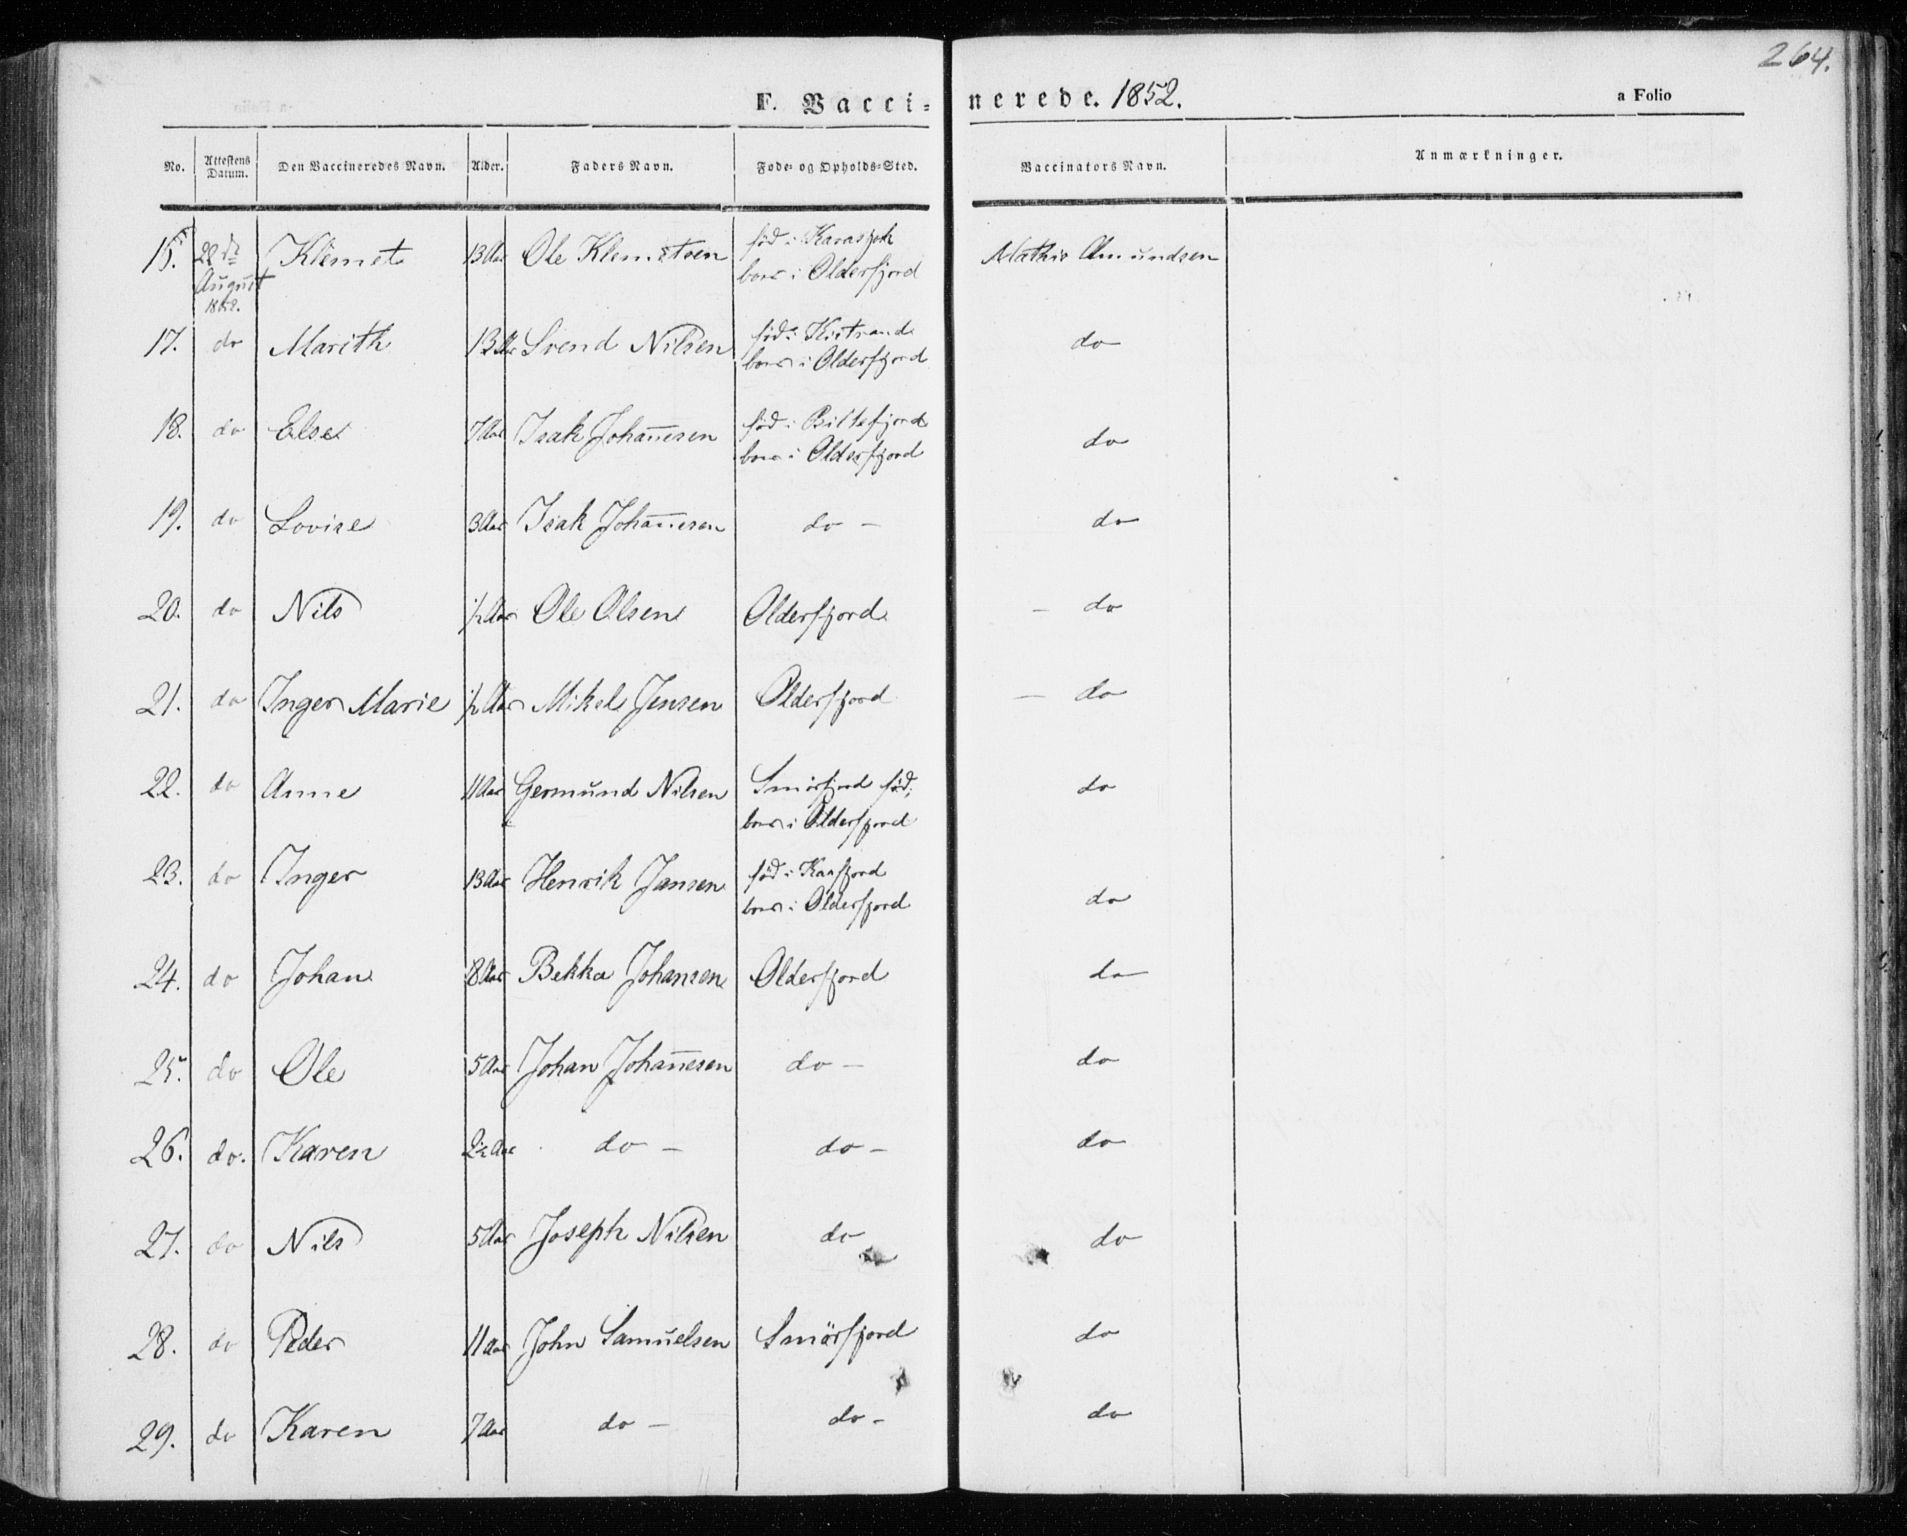 264.
F. Vaccinerede. 1852.
a Folio
No. | Attestens Datum. | Den Vaccineredes Navn. | Alder. | Faders Navn. | Føde- og Opholds-Sted. | Vaccinators Navn. | Anmærkninger.
16. | 22de August 1852. | Klemet | 13 Aar | Ole Klemetsen | fød i Karasjok boer i Olderfjord | Mathis Amundsen
17. | do | Marith | 13 Aar | Svend Nilsen | fød i Kistrand boer i Olderfjord | do
18. | do | Else | 7 Aar | Isak Johan̅esen | fød i Billefjord boer i Olderfjord | do
19. | do | Lovise | 3 Aar | Isak Johan̅esen | do — | do
20. | do | Nils | ½ Aar | Ole Olsen | Olderfjord | — do
21. | do | Inger Marie | ½ Aar | Mikel Jensen | Olderfjord | — do
22. | do | Anne | 11 Aar | Germund Nilsen | Smörfjord fød, boer i Olderfjord | do
23. | do | Inger | 13 Aar | Henrik Jansen | fød i Kaafjord boer i Olderfjord | do
24. | do | Johan | 8 Aar | Bekka Johansen | Olderfjord | do
25. | do | Ole | 5 Aar | Johan Johan̅esen | do — | do
26. | do. | Karen | 2½ Aar | do — | do — | do
27. | do | Nils | 5 Aar | Joseph Nilsen | do | do
28. | do | Peder | 11 Aar | John Samuelsen | Smörfjord | do
29. | do | Karen | 7 Aar | do — | do — | do